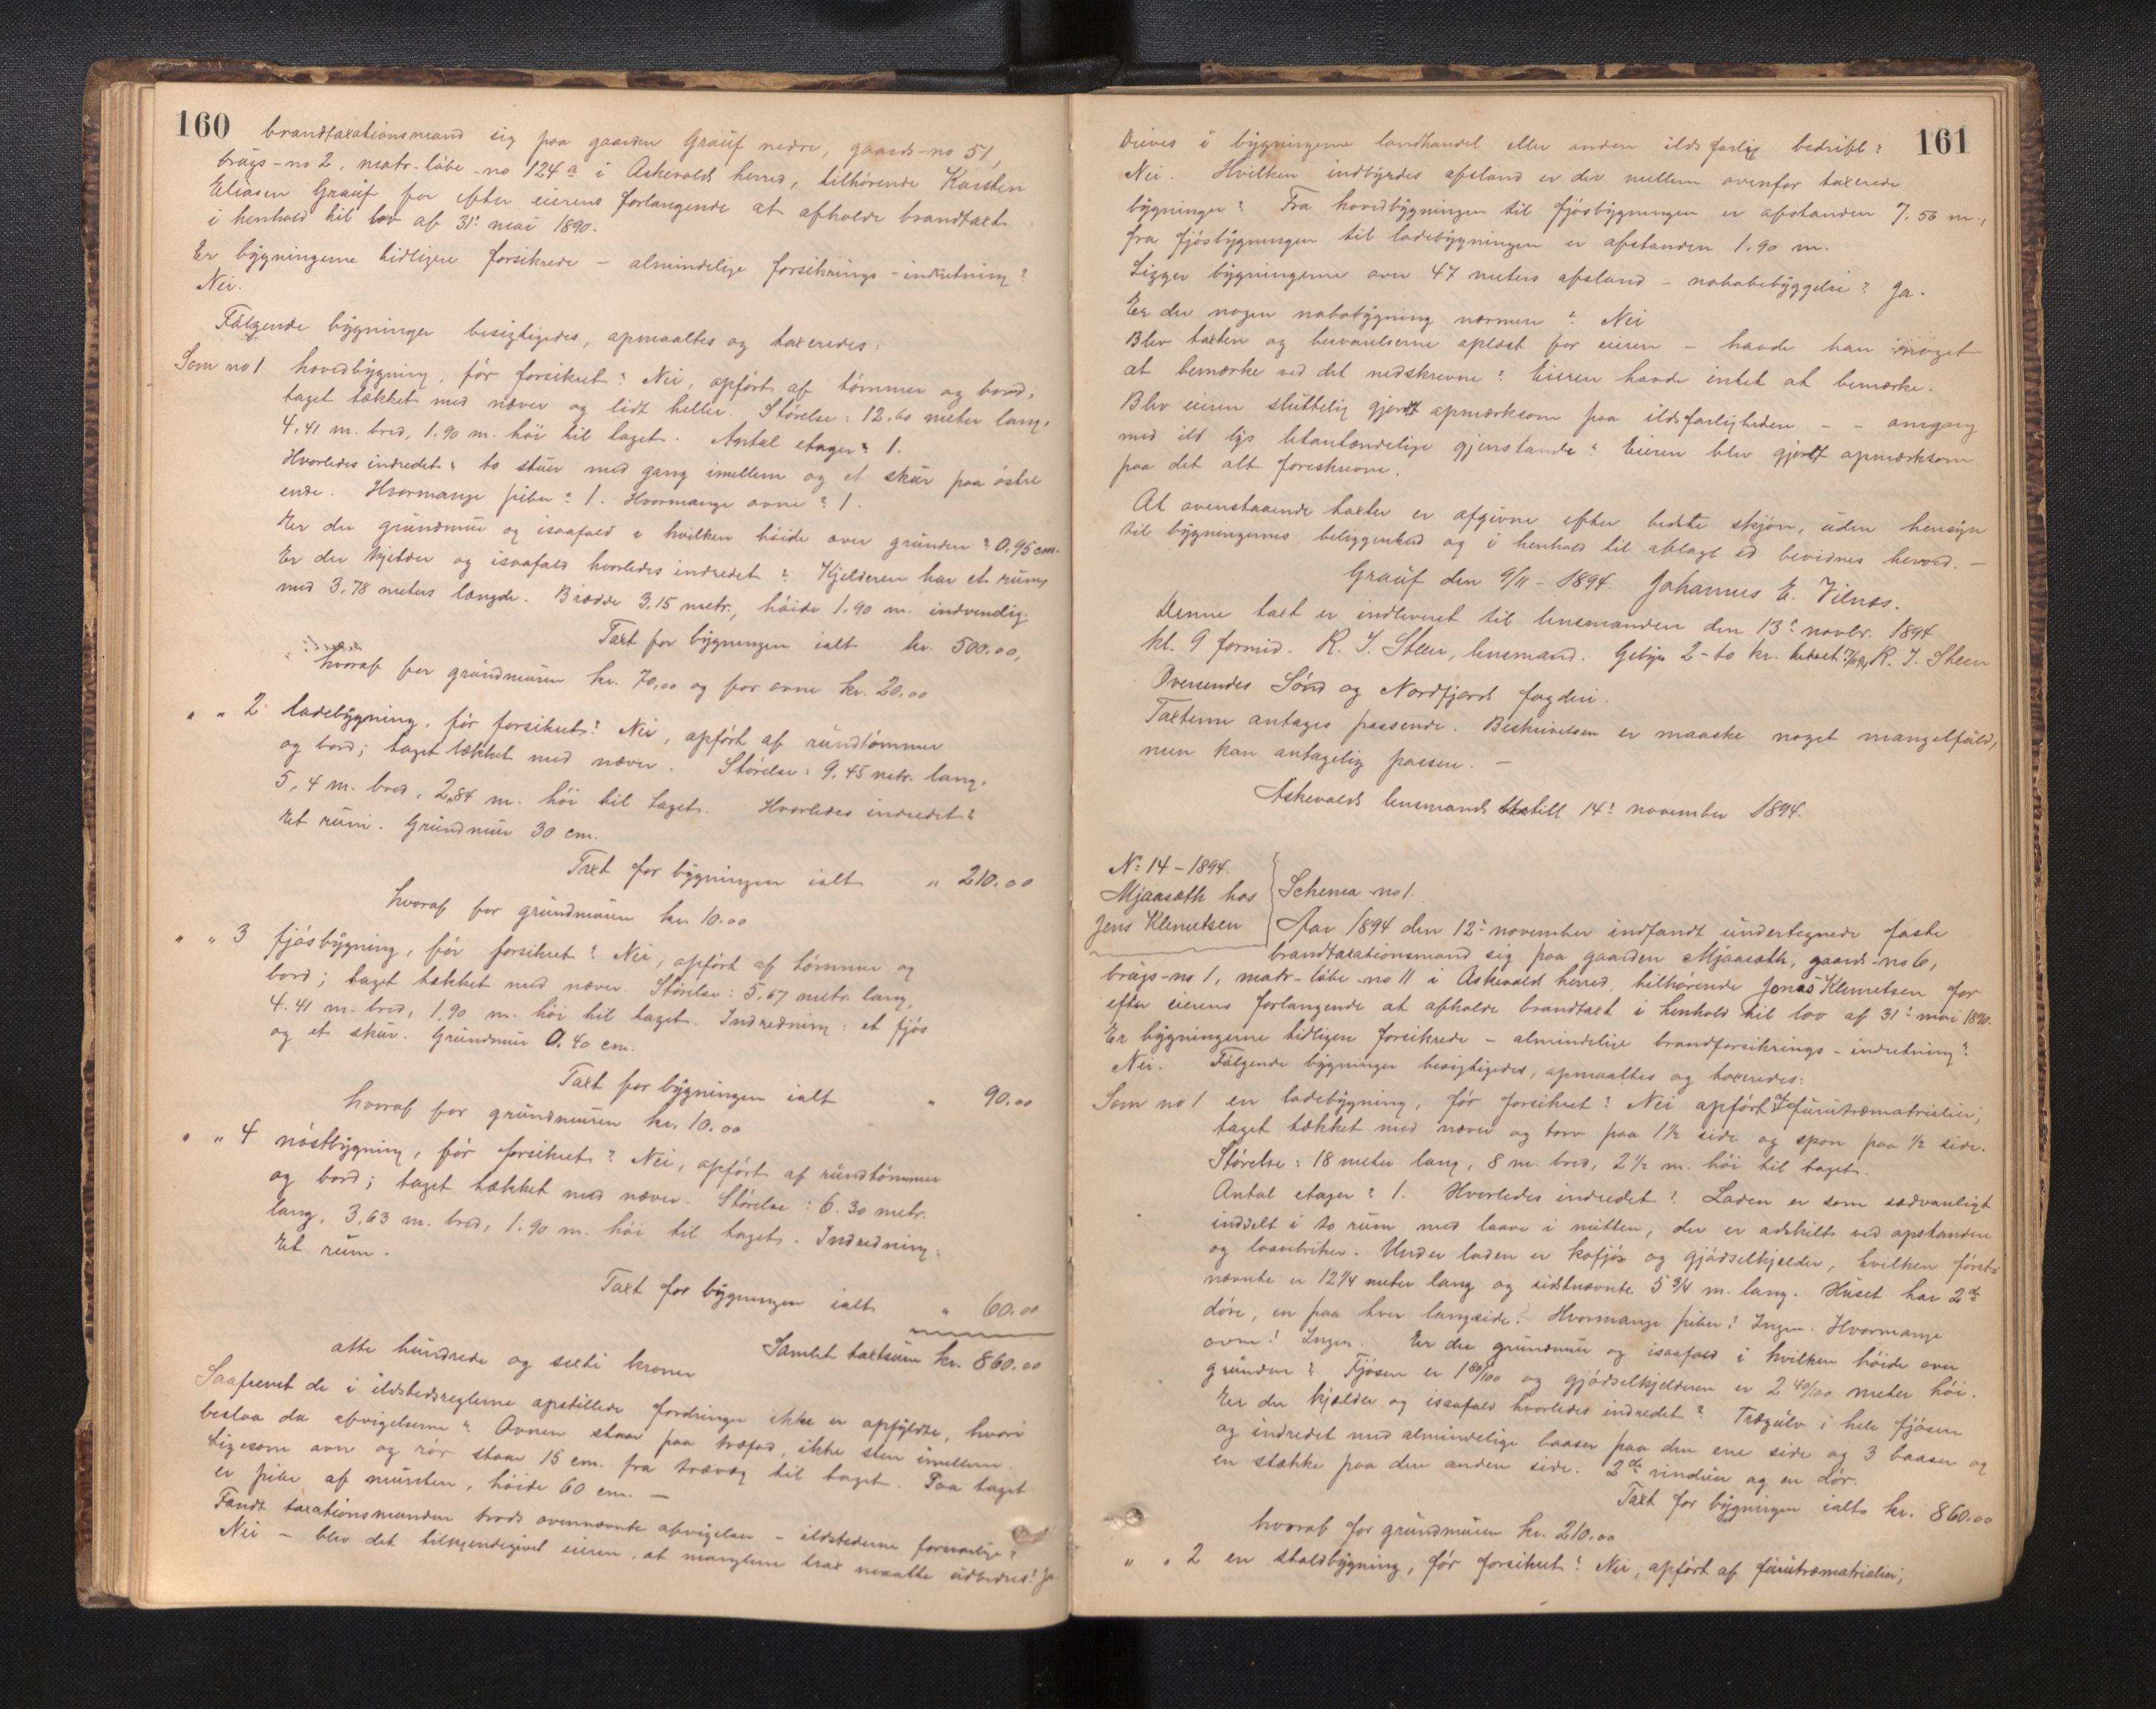 160
brandtaxationsmand sig paa gaarden Grauf nedre, gaards-no 51,
brugs-no 2, matr-løbe-no 124 a i Askevolds herred, tilhørende Karsten
Eliasen Grauf for efter eierens forlangende at afholde brandtaxt
i henhold til lov af 31: mai 1890.
Er bygningerne tidligere forsikrede - almindelige forsikrings-indretning?
Nei.
Følgende bygninger besigtigedes, opmaaltes og taxeredes:
Som no 1 hovedbygning, før forsikret? Nei, opført af tømmer og bord;
taget tækket med næver og lidt heller. Størelse: 12.60 meter lang,
4.41 m. bred, 1.90 m. høi til taget. Antal etager? 1.
Hvorledes indredet? to stuer med gang imellem og et skur paa østre
ende. Hvormange piber? 1. Hvormange ovne? 1.
Er der grundmur og isaafald i hvilken høide over grunden? 0.95 cm.
Er der kjelder og isaafald hvorledes indredet? Kjelderen har et rum,
med 3.78 meters længde. Brædde 3.15 metr., høide 1.90 m. indvendig.
Taxt for bygningen ialt kr. 500.00,
hvoraf for grundmuren kr. 70,00 og for ovne kr. 20.00
" " 2 ladebygning, før forsikret? Nei, opført af rundtømmer
og bord; taget tækket med næver. Størelse: 9.45 metr. lang,
5,4 m. bred, 2,84 m. høi til taget. Hvorledes indredet?
Et rum. Grundmur 30 cm.
Taxt for bygningen ialt " 210.00
hvoraf for grundmuren kr. 10.00
" " 3 fjøsbygning, før forsikret? Nei, opført af tømmer og
bord; taget tækket med næver. Størelse: 5.67 metr. lang,
4.41 m. bred, 1.90 m. høi til taget. Indredning: et fjøs
og et skur. Grundmur 0.40 cm.
Taxt for bygningen ialt " 90.00
hvoraf for grundmuren kr. 10.00
" " 4 nøstbygning, før forsikret? Nei, opført af rundtømmer
og bord; taget tækket med næver. Størelse: 6.30 metr.
lang, 3,63 m. bred, 1.90 m. høi til taget. Indredning:
Et rum.
Taxt for bygningen ialt " 60.00
Samlet taxtsum kr. 860.00
otte hundrede og sexti kroner
Saafremt de i ildstedsreglerne opstillede fordringer ikke er opfyldte, hvori
bestaa da afvigelserne? Ovnen staar paa træfod, ikke sten imellem.
Ligesom ovn og rør staar 15 cm. fra trævæg til taget. Paa taget
er pibe af mursten, høide 60 cm. -
Fandt taxationsmanden trods ovennævnte afvigelser - ildstederne forsvarlige?
Nei - blev det tilkjendegivet eieren, at manglerne strax maatte udbedres? Ja
161
Drives i bygningerne landhandel eller anden ildsfarlig bedrift?
Nei. Hvilken indbyrdes afstand er der mellem ovenfor taxerede
bygninger? Fra hovedbygningen til fjøsbygningen er afstanden 7.56 m.,
fra fjøsbygningen til ladebygningen er afstanden 1.90 m.
Ligger bygningerne over 47 meters afstand - nabobebyggelse? Ja.
Er der nogen nabobygning nærmere? Nei
Blev taxten og besvarelserne oplæst for eieren - havde han noget
at bemærke ved det nedskrevne? Eieren havde intet at bemærke.
Blev eieren sluttelig gjordt opmærksom paa ildsfarligheden - - omgang
med ild lys letantændelige gjenstande? Eieren blev gjordt opmærksom
paa det alt foreskrevne.
At ovenstaaende taxter er afgivne efter bedste skjøn, uden hensyn
til bygningernes beliggenhed og i henhold til aflagt ed bevidnes herved. -
Grauf den 9/11 - 1894. Johannes E. Vilnæs.
Denne taxt er indleveret til lensmanden den 13: novbr. 1894
kl. 9 formid. R. J. Steen, lensmand. Gebyr 2-to kr. betalt R. J. Steen
Oversendes Sønd og Nordfjord fogderi.
Taxterne antages passende. Beskrivelsen er maaske noget mangelfuld,
men kan antagelig passere. -
Askevolds lensmands 14: november 1894.
No: 14 - 1894.
Mjaasæth hos
Jens Klemetsen
Schema no 1.
Aar 1894 den 12: november indfandt undertegnede faste
brandtaxationsmand sig paa gaarden Mjaasæth, gaards-no 6,
brugs-no 1, matr-løbe-no 11 i Askevold herred, tilhørende Jonas Klemetsen for
efter eierens forlangende at afholde brandtaxt i henhold til lov af 31: mai 1890.
Er bygningerne tidligere forsikrede - almindelige brandforsikrings-indretning?
Nei. Følgende bygninger besigtigedes, opmaaltes og taxeredes:
Som no 1 en ladebygning, før forsikret? Nei opført af furutræmatrialier;
taget tækket med næver og torv paa 1 1/2 side og spon paa 1/2 side.
Størelse: 18 meter lang, 8 m. bred, 2 1/2 m. høi til taget.
Antal etager? 1. Hvorledes indredet? Laden er som sædvanligt
inddelt i to rum med laave i midten, der er adskilt ved opstandere
og laavebriker. Under laden er kofjøs og gjødselkjælder, hvilken først-
nævnte er 12 1/4 meter lang og sidstnævnte 5 3/4 m. lang. Huset har 2de
døre, en paa hver langside. Hvormange piber? Ingen. Hvormange
ovne? Ingen. Er der grundmur og isaafald i hvilken høide over
grunden? Fjøsen er 1 80/100 og gjødselkjelderen er 2 40/100 meter høi.
Er der kjælder og isaafald hvorledes indredet? Trægulv i hele fjøsen
og indredet med almindelige baaser paa den ene side og 3 baaser og
en stakke paa den anden side. 2de vinduer og en dør.
Taxt for bygningen ialt kr. 860.00
hvoraf for grundmuren kr. 210.00
" " 2 en staldbygning, før forsikret? Nei, opført af furutræmatrialier;